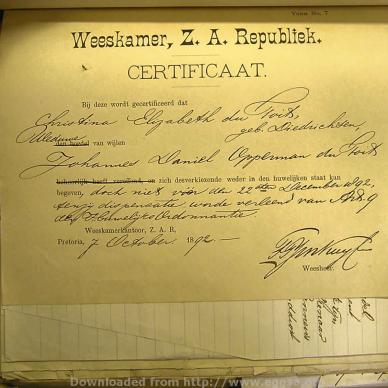 Vorm No. 7
Weeskamer, Z. A. Republiek.
CERTIFICAAT.
Bij deze wordt gecertificeerd dat
Christina Elizabeth du Toit,
geb. Diedrichsen,
Weduwe
den boedel van wijlen
Johannes Daniel Opperman du Toit
behoorlijk heeft en zich desverkiezende weder in den huwelijken staat kan
begeven, doch niet vóór den 22sten December 1892,
tenzij dispensatie worde verleend van Art. 9
der Huwelijks Ordonnantie
Weeskamerkantoor, Z. A. R,
Pretoria, 7 October 1892
Weesheer.
Downloaded from http://www.eggsa.org/